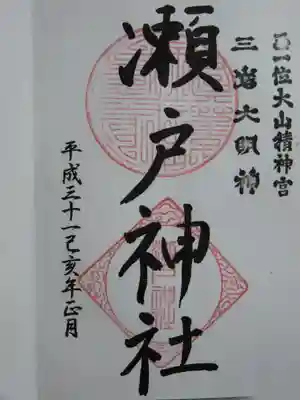 正一位大山積神宮
三島大明神
瀬戸神社
平成三十一己亥年正月